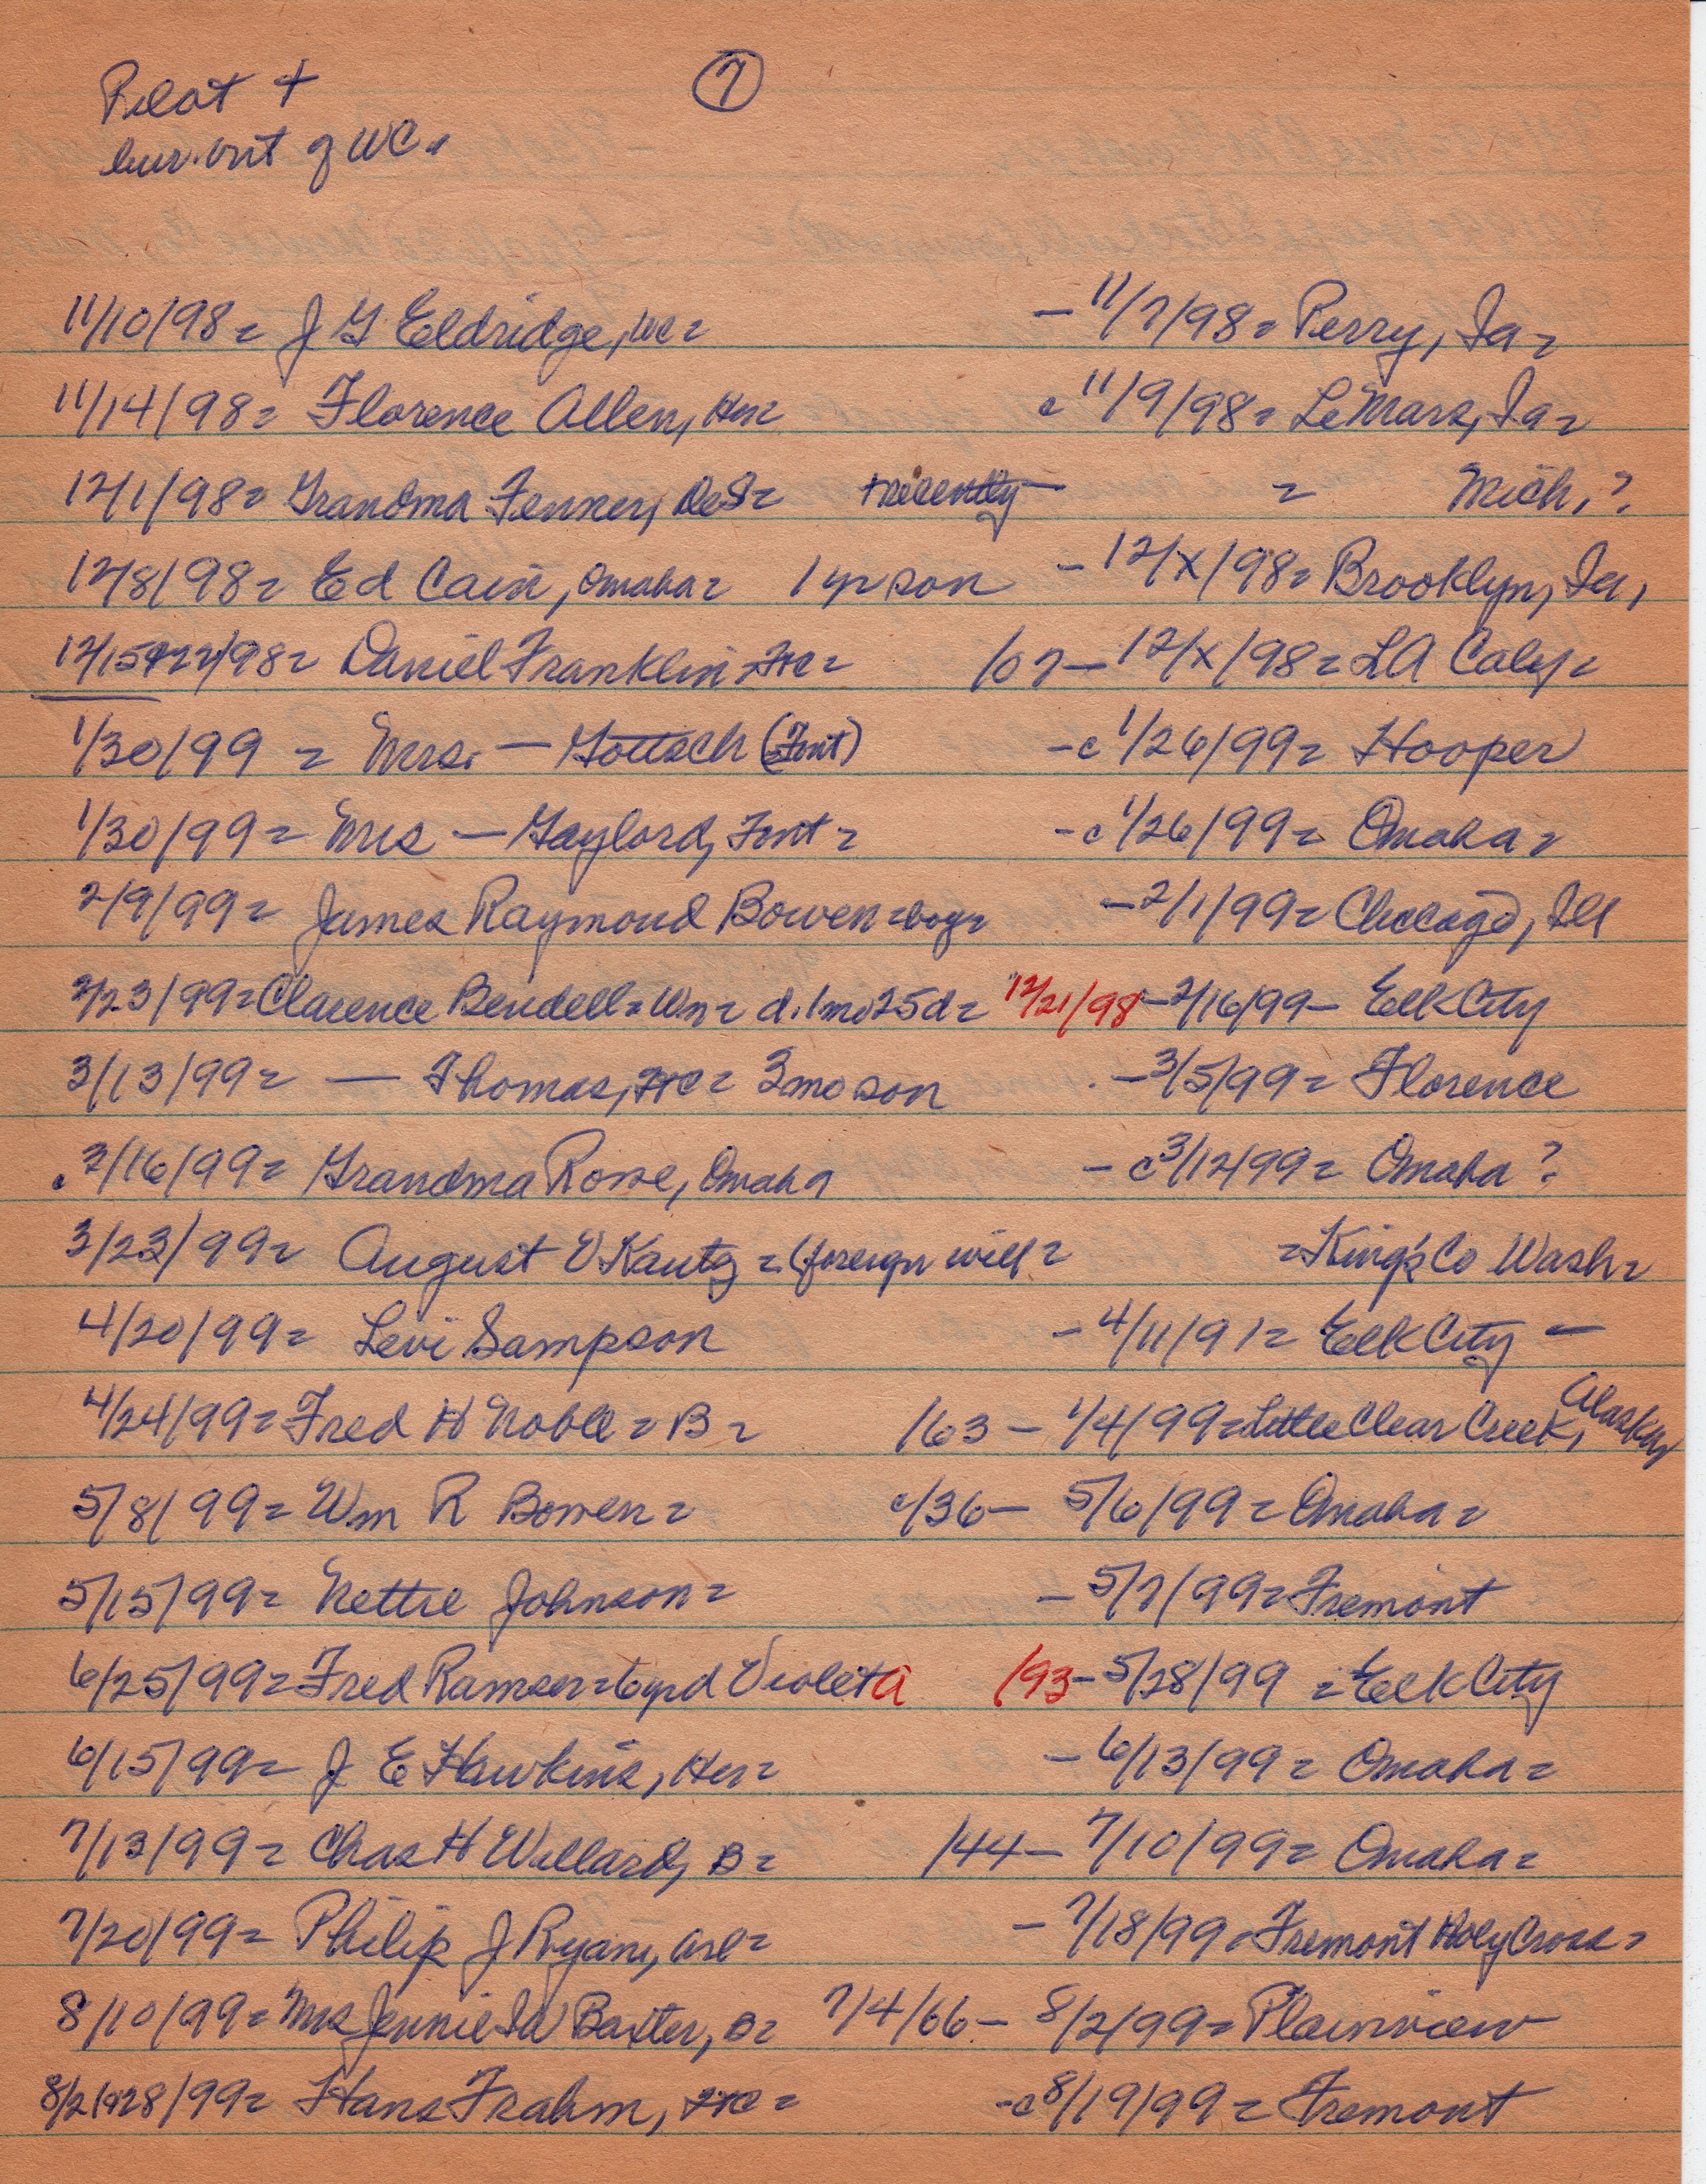 Pilot +
bur. out of WC.
7
11/10/98 = J G Eldridge, WC = - 11/7/98 = Perry, Ia =
11/14/98 = Florence Allen, Her = c 11/9/98 = LeMars, Ia =
12/1/98 = Grandma Fenner, DeS = + recently - = Mich, ?
12/8/98 = Ed Cain, Omaha = 1 yr son - 12/x/98 = Brooklyn, Ia,
12/15+22/98 = Daniel Franklin = FtC = /07 - 12/x/98 = LA Calif =
1/30/99 = Mrs. — Gottsch (Font) - c 1/26/99 = Hooper
1/30/99 = Mrs — Gaylord, Font = - c 1/26/99 = Omaha =
2/9/99 = James Raymond Bowen = boy = - 2/1/99 = Chicago, Ill
2/23/99 = Clarence Bendell = Wm = d. 1mo 25d = 12/21/98 - 2/16/99 - Elk City
3/13/99 = — Thomas, FtC = 3mo son - 3/5/99 = Florence
c 3/16/99 = Grandma Rose, Omaha - c 3/12/99 = Omaha ?
3/23/99 = August V Kautz = (foreign will = = King's Co Wash =
4/20/99 = Levi Sampson - 4/11/91 = Elk City —
4/24/99 = Fred H Noble = B = /63 - 1/4/99 = Little Clear Creek, Alaska
5/8/99 = Wm R Bowen = c/36 - 5/6/99 = Omaha =
5/15/99 = Nettie Johnson = - 5/7/99 = Fremont
6/25/99 = Fred Ramser = 6yr d Violeta /93 - 5/28/99 = Elk City
6/15/99 = J E Hawkins, Her = - 6/13/99 = Omaha =
7/13/99 = Chas H Willard, B = /44 - 7/10/99 = Omaha =
7/20/99 = Philip J Ryan, Arl = - 7/18/99 = Fremont Holy Cross =
8/10/99 = Mrs Jennie Baxter, B = 7/4/66 - 8/2/99 = Plainview
8/21+28/99 = Hans Frahm, FtC = - c 8/19/99 = Fremont